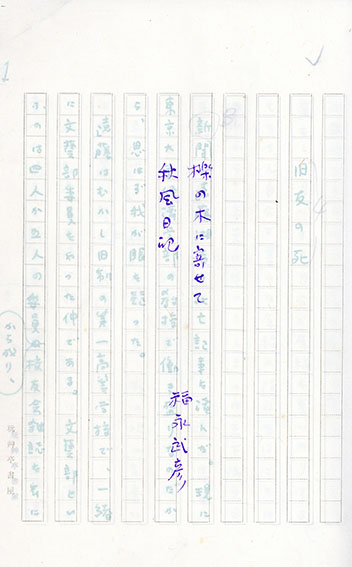 旧友の死
櫟の木に寄せて
秋風日記
福永武彦
新聞
亡記事を読んだ。現に
東京大
の教授で働
、思はず我が眼を疑った。
遠藤はむかし旧制の第一高等学校で、一緒
に文藝部委員をやった仲である。文藝部とい
ふのは四人か五人の委員
校友会雑誌を
から成り、
1